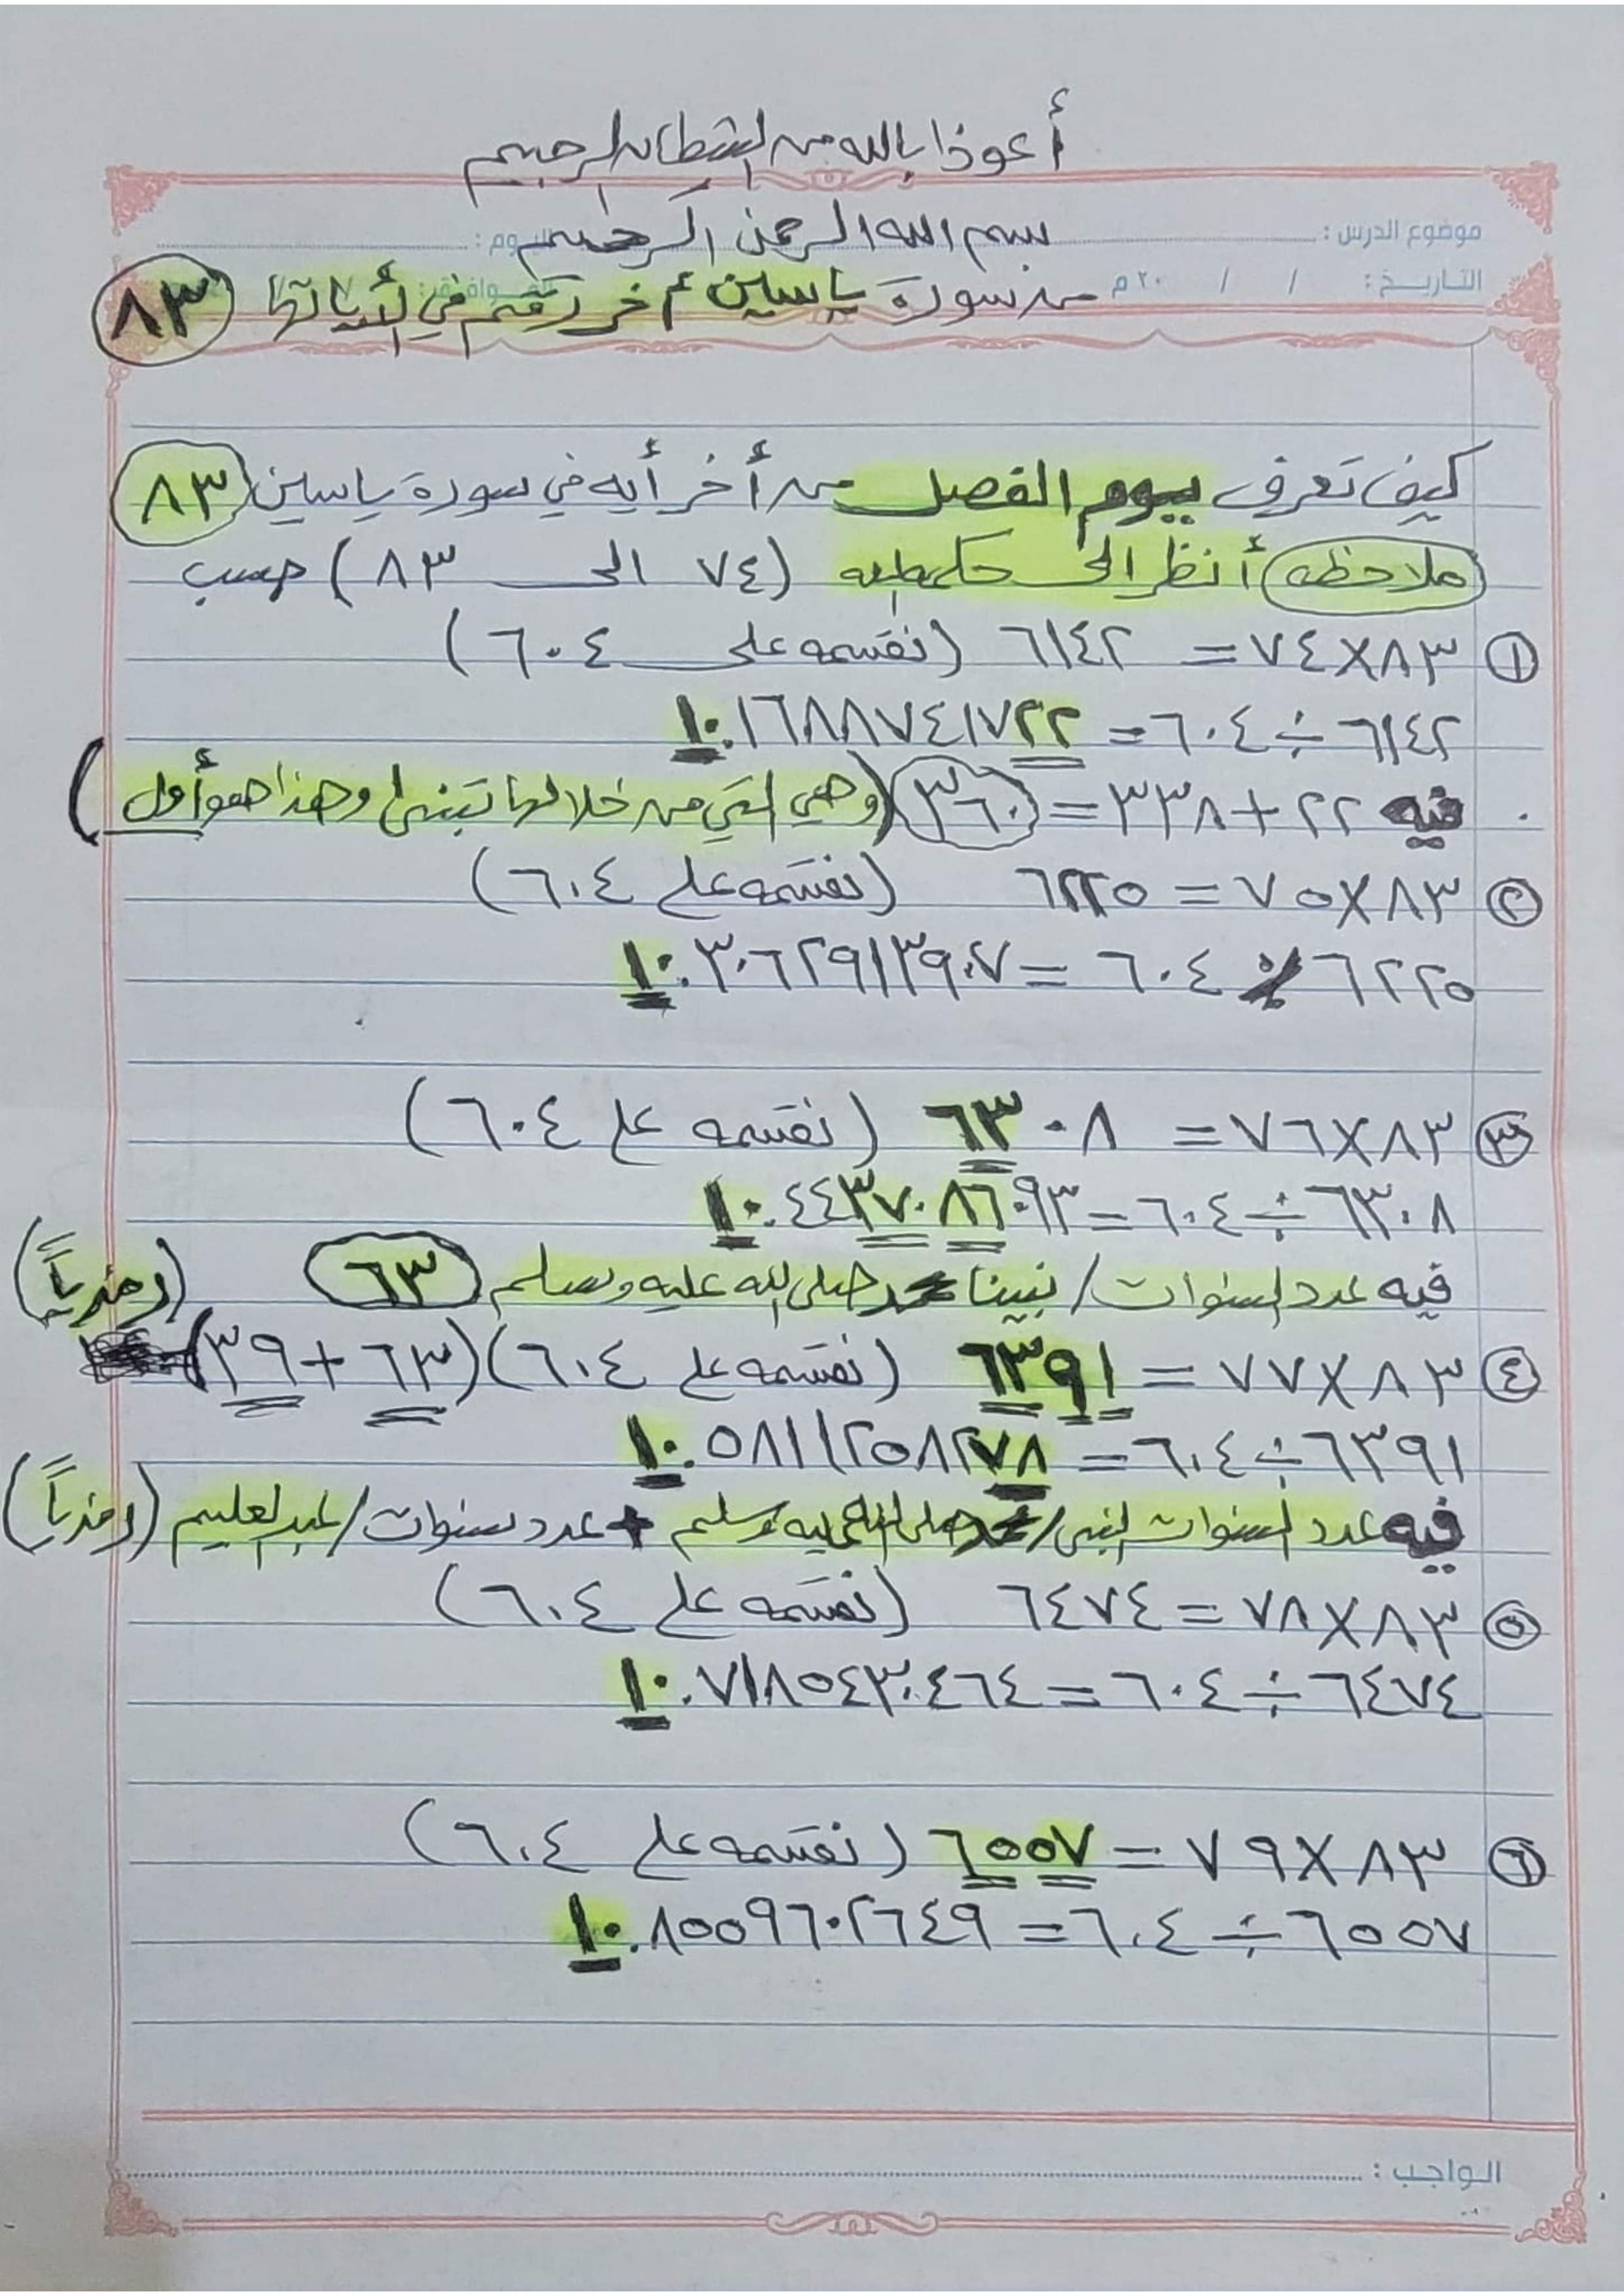 أعوذ بالله من الشيطان الرجيم
بسم الله الرحمن الرحيم
موضوع الدرس : اليوم :
التاريخ : / / ٢٠ م الموافق :
من سورة ياسين أخر رقم في أياتها ٨٣
كيف تعرف يوم الفصل من أخر أيه في سورة ياسين ٨٣
ملاحظه أنظر الى (٧٤ الى ٨٣) حسب
① ٨٣×٧٤ = ٦١٤٢ (نقسمه على ٦٠٤)
٦١٤٢ ÷ ٦٠٤ = ١٠.١٦٨٨٧٤١٧٢٢
فيه ٢٢+٣٣٨ = ٣٦٠ (وهي التي من خلالها تبنى وهذا هو أول)
② ٨٣×٧٥ = ٦٢٢٥ (نقسمه على ٦٠٤)
٦٢٢٥ ÷ ٦٠٤ = ١٠.٣٠٦٢٩١٣٩٠٧
③ ٨٣×٧٦ = ٦٣٠٨ (نقسمه على ٦٠٤)
٦٣٠٨ ÷ ٦٠٤ = ١٠.٤٤٣٧٠٨٦٠٩٣
فيه عدد السنوات / نبينا محمد صلى الله عليه وسلم ٦٣ (رمزياً)
④ ٨٣×٧٧ = ٦٣٩١ (نقسمه على ٦٠٤) (٦٣+٣٩)
٦٣٩١ ÷ ٦٠٤ = ١٠.٥٨١١٢٥٨٢٧٨
فيه عدد السنوات النبي / محمد صلى الله عليه وسلم + عدد سنوات / عبدالعليم (رمزياً)
⑤ ٨٣×٧٨ = ٦٤٧٤ (نقسمه على ٦٠٤)
٦٤٧٤ ÷ ٦٠٤ = ١٠.٧١٨٥٤٣٠٤٦٤
⑥ ٨٣×٧٩ = ٦٥٥٧ (نقسمه على ٦٠٤)
٦٥٥٧ ÷ ٦٠٤ = ١٠.٨٥٥٩٦٠٢٦٤٩
الواجب :